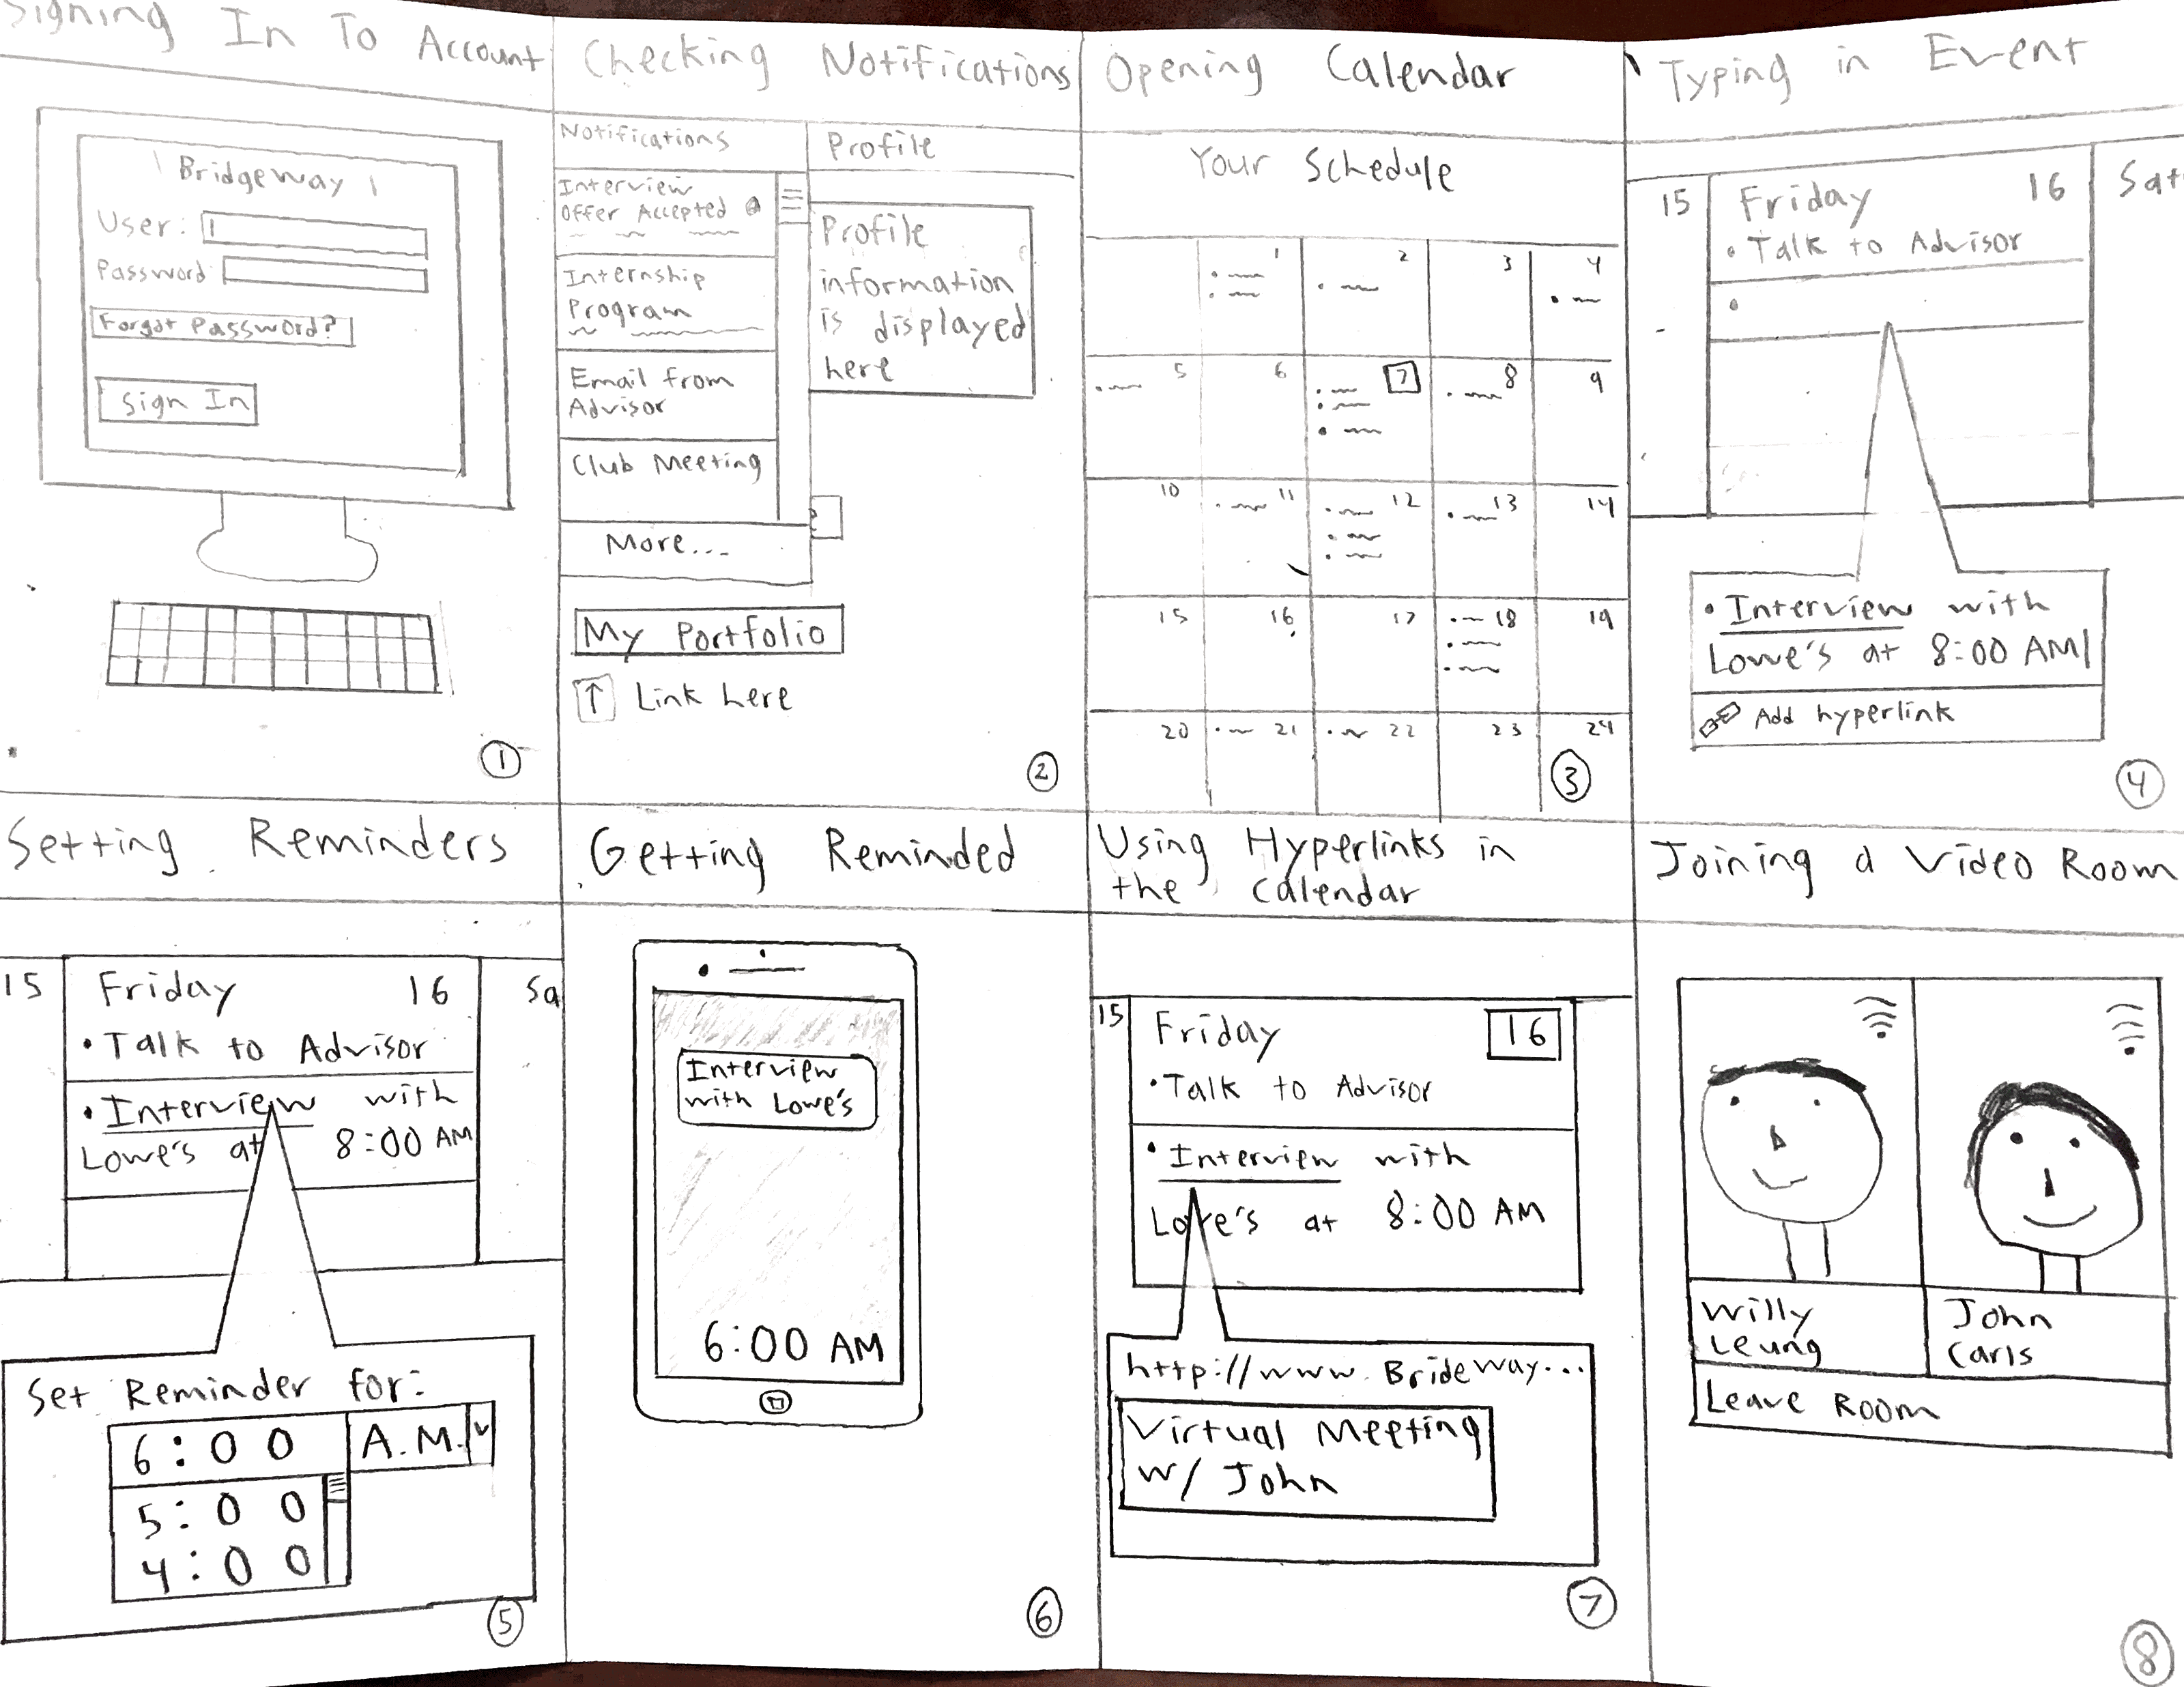 Signing In To Account
Bridgeway
User:
Password
Forgot Password?
Sign In
1
Checking Notifications
Notifications
Profile
Interview
Offer Accepted
Internship
Program
Email from
Advisor
Club Meeting
More...
Profile
information
is displayed
here
My Portfolio
↑ Link here
2
Opening Calendar
Your Schedule
1 2 3 4
5 6 7 8 9
10 11 12 13 14
15 16 17 18 19
20 21 22 23 24
3
Typing in Event
15 Friday 16 Sat
• Talk to Advisor
•
• Interview with
Lowe's at 8:00 AM
Add hyperlink
4
Setting Reminders
15 Friday 16 Sa
• Talk to Advisor
• Interview with
Lowe's at 8:00 AM
Set Reminder for:
6:00 A.M.
5:00
4:00
5
Getting Reminded
Interview
with Lowe's
6:00 AM
6
Using Hyperlinks in
the Calendar
15 Friday 16
• Talk to Advisor
• Interview with
Lowe's at 8:00 AM
http://www.Brideway...
Virtual Meeting
w/ John
7
Joining a Video Room
Willy
Leung
John
Carls
Leave Room
8